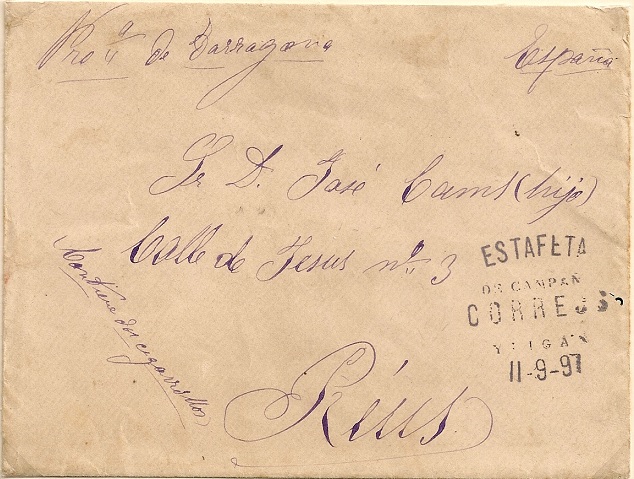 Proª de Tarragona
España
Sr D. José Cams (hijo)
Calle de Jesus nº 3
Contiene dos cigarrillos
Réus
ESTAFETA
DE CAMPAÑ
CORREOS
YLIGAN
11-9-97